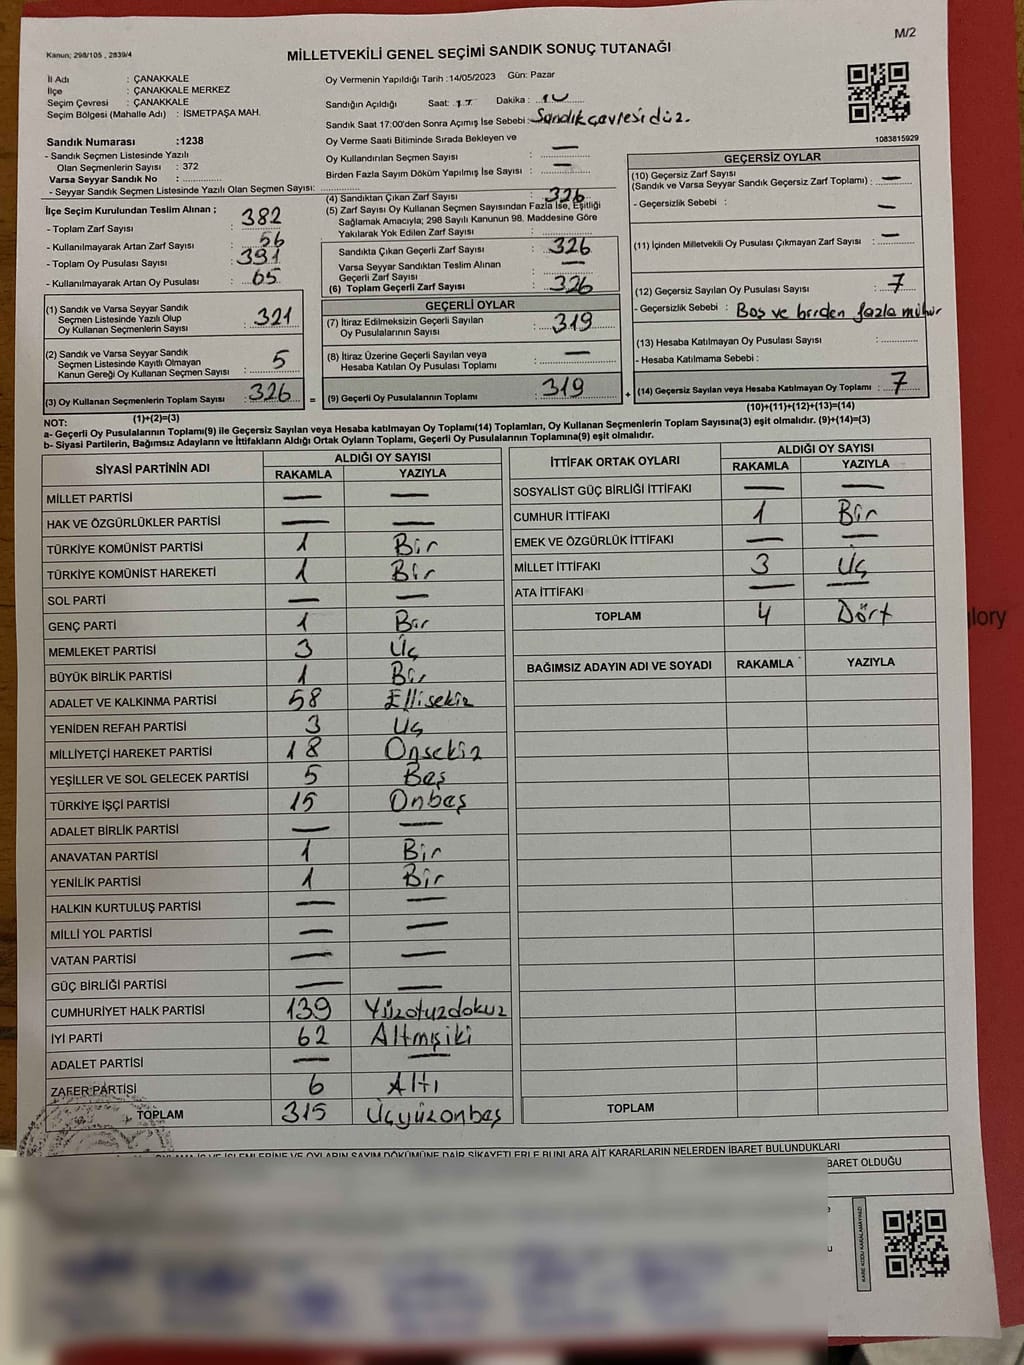 Kanun; 298/105 , 2839/4
M/2
MİLLETVEKİLİ GENEL SEÇİMİ SANDIK SONUÇ TUTANAĞI
İl Adı : ÇANAKKALE
İlçe : ÇANAKKALE MERKEZ
Seçim Çevresi : ÇANAKKALE
Seçim Bölgesi (Mahalle Adı) : İSMETPAŞA MAH.
Sandık Numarası :1238
- Sandık Seçmen Listesinde Yazılı
Olan Seçmenlerin Sayısı : 372
Varsa Seyyar Sandık No :
- Seyyar Sandık Seçmen Listesinde Yazılı Olan Seçmen Sayısı:
Oy Vermenin Yapıldığı Tarih :14/05/2023 Gün: Pazar
Sandığın Açıldığı Saat: 17 Dakika :
Sandık Saat 17:00'den Sonra Açımış İse Sebebi: Sandık çevresi düz.
Oy Verme Saati Bitiminde Sırada Bekleyen ve
Oy Kullandırılan Seçmen Sayısı : —
Birden Fazla Sayım Döküm Yapılmış İse Sayısı : —
1083815929
İlçe Seçim Kurulundan Teslim Alınan ;
- Toplam Zarf Sayısı : 382
- Kullanılmayarak Artan Zarf Sayısı : 56
- Toplam Oy Pusulası Sayısı : 391
- Kullanılmayarak Artan Oy Pusulası : 65
(1) Sandık ve Varsa Seyyar Sandık
Seçmen Listesinde Yazılı Olup
Oy Kullanan Seçmenlerin Sayısı : 321
(2) Sandık ve Varsa Seyyar Sandık
Seçmen Listesinde Kayıtlı Olmayan
Kanun Gereği Oy Kullanan Seçmen Sayısı : 5
(3) Oy Kullanan Seçmenlerin Toplam Sayısı : 326 =
(4) Sandıktan Çıkan Zarf Sayısı : 326
(5) Zarf Sayısı Oy Kullanan Seçmen Sayısından Fazla İse, Eşitliği
Sağlamak Amacıyla; 298 Sayılı Kanunun 98. Maddesine Göre
Yakılarak Yok Edilen Zarf Sayısı :
Sandıkta Çıkan Geçerli Zarf Sayısı : 326
Varsa Seyyar Sandıktan Teslim Alınan
Geçerli Zarf Sayısı : —
(6) Toplam Geçerli Zarf Sayısı : 326
GEÇERLİ OYLAR
(7) İtiraz Edilmeksizin Geçerli Sayılan
Oy Pusulalarının Sayısı : 319
(8) İtiraz Üzerine Geçerli Sayılan veya
Hesaba Katılan Oy Pusulası Toplamı : —
(9) Geçerli Oy Pusulalarının Toplamı : 319 +
GEÇERSİZ OYLAR
(10) Geçersiz Zarf Sayısı
(Sandık ve Varsa Seyyar Sandık Geçersiz Zarf Toplamı) : —
- Geçersizlik Sebebi : —
(11) İçinden Milletvekili Oy Pusulası Çıkmayan Zarf Sayısı : —
(12) Geçersiz Sayılan Oy Pusulası Sayısı : 7
- Geçersizlik Sebebi : Boş ve birden fazla mühür
(13) Hesaba Katılmayan Oy Pusulası Sayısı :
- Hesaba Katılmama Sebebi :
(14) Geçersiz Sayılan veya Hesaba Katılmayan Oy Toplamı : 7
NOT: (1)+(2)=(3)
(10)+(11)+(12)+(13)=(14)
a- Geçerli Oy Pusulalarının Toplamı(9) ile Geçersiz Sayılan veya Hesaba katılmayan Oy Toplamı(14) Toplamları, Oy Kullanan Seçmenlerin Toplam Sayısına(3) eşit olmalıdır. (9)+(14)=(3)
b- Siyasi Partilerin, Bağımsız Adayların ve İttifakların Aldığı Ortak Oyların Toplamı, Geçerli Oy Pusulalarının Toplamına(9) eşit olmalıdır.
SİYASİ PARTİNİN ADI ALDIĞI OY SAYISI
RAKAMLA YAZIYLA
MİLLET PARTİSİ — —
HAK VE ÖZGÜRLÜKLER PARTİSİ — —
TÜRKİYE KOMÜNİST PARTİSİ 1 Bir
TÜRKİYE KOMÜNİST HAREKETİ 1 Bir
SOL PARTİ — —
GENÇ PARTİ 1 Bir
MEMLEKET PARTİSİ 3 Üç
BÜYÜK BİRLİK PARTİSİ 1 Bir
ADALET VE KALKINMA PARTİSİ 58 Ellisekiz
YENİDEN REFAH PARTİSİ 3 Üç
MİLLİYETÇİ HAREKET PARTİSİ 18 Onsekiz
YEŞİLLER VE SOL GELECEK PARTİSİ 5 Beş
TÜRKİYE İŞÇİ PARTİSİ 15 Onbeş
ADALET BİRLİK PARTİSİ — —
ANAVATAN PARTİSİ 1 Bir
YENİLİK PARTİSİ 1 Bir
HALKIN KURTULUŞ PARTİSİ — —
MİLLİ YOL PARTİSİ — —
VATAN PARTİSİ — —
GÜÇ BİRLİĞİ PARTİSİ — —
CUMHURİYET HALK PARTİSİ 139 Yüzotuzdokuz
İYİ PARTİ 62 Altmışiki
ADALET PARTİSİ — —
ZAFER PARTİSİ 6 Altı
TOPLAM 315 Üçyüzonbeş
İTTİFAK ORTAK OYLARI ALDIĞI OY SAYISI
RAKAMLA YAZIYLA
SOSYALİST GÜÇ BİRLİĞİ İTTİFAKI — —
CUMHUR İTTİFAKI 1 Bir
EMEK VE ÖZGÜRLÜK İTTİFAKI — —
MİLLET İTTİFAKI 3 Üç
ATA İTTİFAKI — —
TOPLAM 4 Dört
BAĞIMSIZ ADAYIN ADI VE SOYADI RAKAMLA YAZIYLA
TOPLAM
glory
OYLAMA İŞ VE İŞLEMLERİNE VE OYLARIN SAYIM DÖKÜMÜNE DAİR ŞİKAYETLERLE BUNLARA AİT KARARLARIN NELERDEN İBARET BULUNDUKLARI
BARET OLDUĞU
KARE KODU KARALAMAYINIZ!